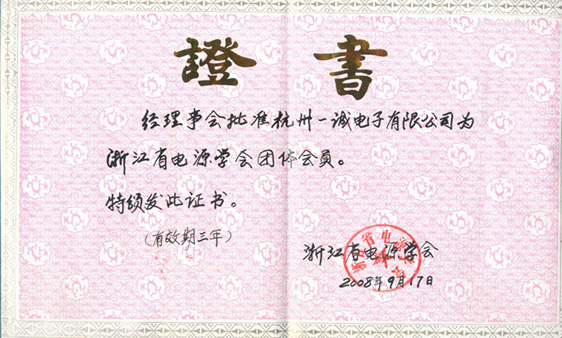 證書
经理事会批准杭州一诚电子有限公司为
浙江省电源学会团体会员。
特颁发此证书。
(有效期三年)
浙江省电源学会
2008年9月17日